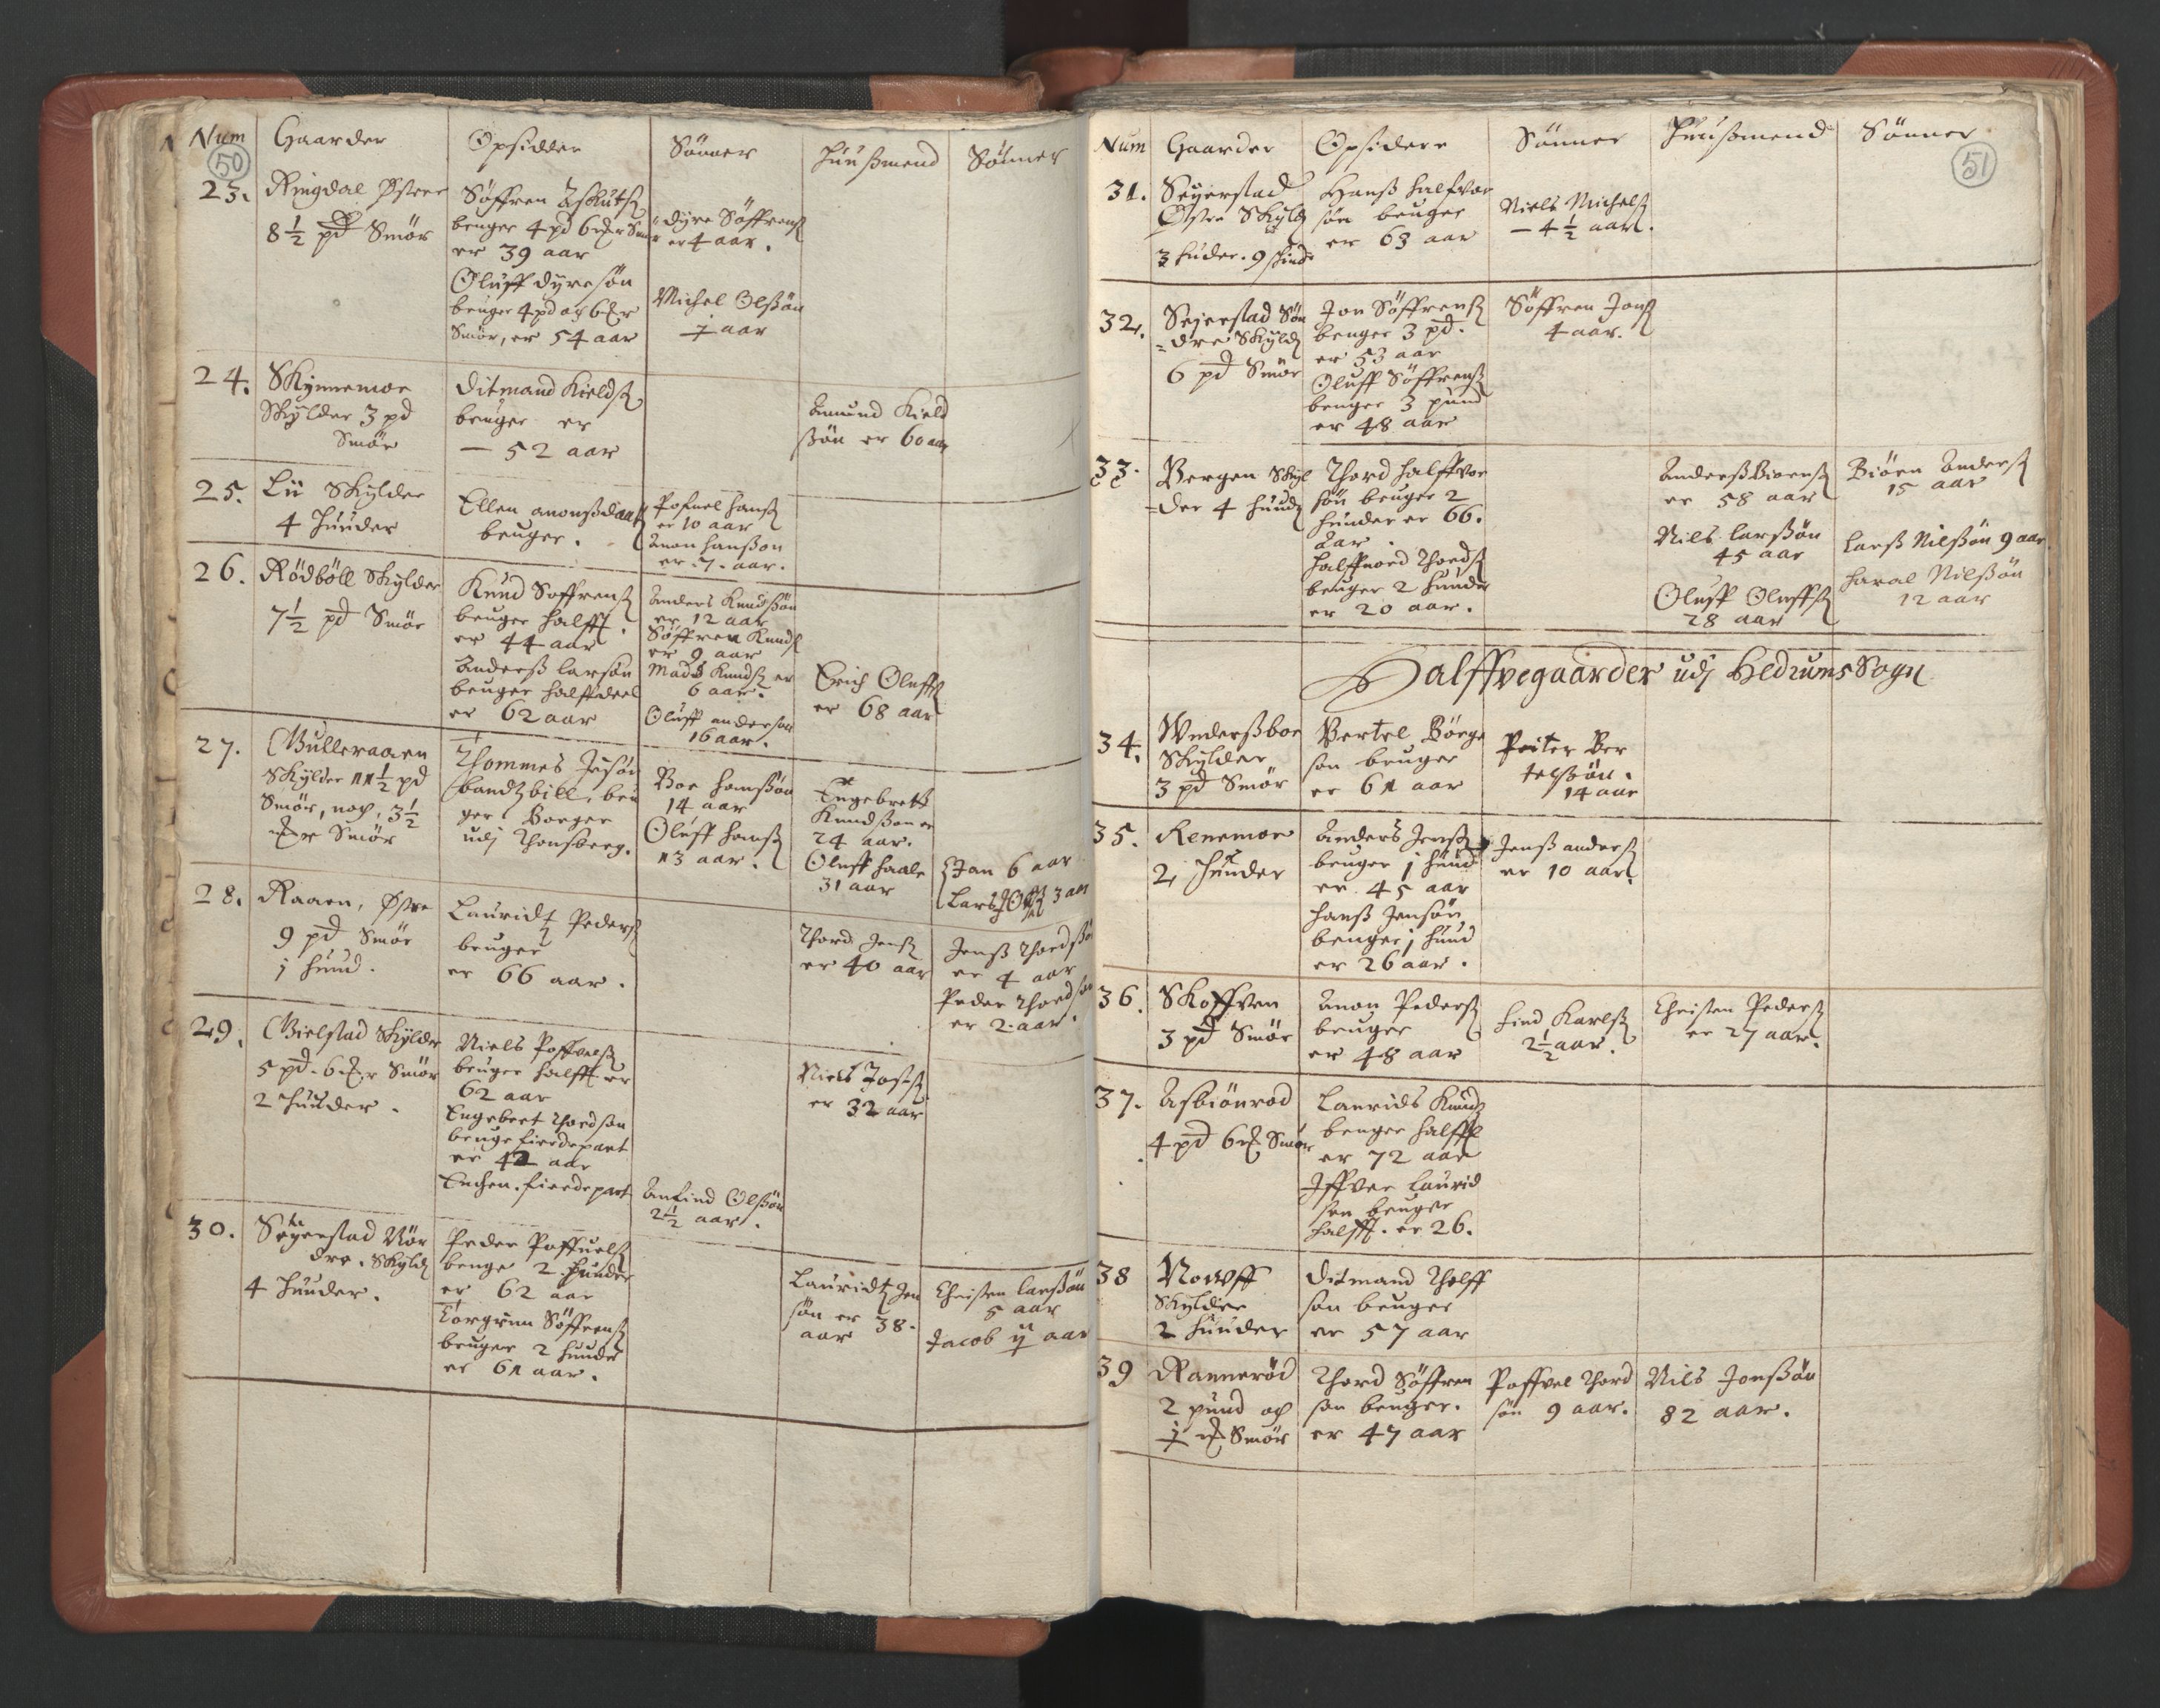 Num Gaarder Opsidder Sønner Huußmend Sønner
50
23. Ringdal Østre
8½ pd Smör
Söffren Aßkutß
beuger 4 pd 6 Smör
er 39 aar
Oluff dyresön
beuger 4 pd og 6
Smör, er 54 aar
dyre Söffrenß
er 4 aar.
Michel Olßön
1 aar
24. Skinnemoe
Skylder 3 pd
Smör
Ditmand Kieldß
beuger er
— 52 aar
Amund Kield
ßön er 60 aar
25. Lii Skylder
4 Huuder
Ellen anonßdaat
beuger.
Pofuel Hanß
er 10 aar
Anon Hanßon
er 7. aar.
26. Rödböll Skylder
7½ pd Smör
Knud Soffrenß
beuger halfft.
er 44 aar
Anderß larsön
beuger halfdeel
er 62 aar
Anders Knudßön
er 12 aar
Söffren Knudß
er 9 aar
Mads Knudß er
6 aar.
Oluff anderson
16 aar.
Erich Oluffß
er 68 aar
27. Gulleraaen
Skylder 11½ pd
Smör, noch, 3½
Smör
Thommes Jesön
bandtzbill, beu
ger Borger
udj Thonsberg.
Boe Hanßön
14 aar
Oluff Hanß
13 aar.
Engebrett
Knudßon er
24 aar.
Oluff Haale
31 aar
Jan 6 aar
Lars 3 aar
28. Raaen, Østre
9 pd Smör
j Huud.
Lauridtz Pederß
beuger
er 66 aar.
Thord Jenß
er 40 aar
Jenß Thordßön
er 4 aar
Peder Thordsön
er 2 aar.
29. Gielstad Skylder
5 pd. 6 Smör
2 Huuder.
Niels Poffvelß
beuger halfft er
62 aar
Engebret Thordson
beuge fierdepart
er 42 aar
Enchen. fierdepart
Anfind Olßön
2½ aar.
Niels Jostß
er 32 aar
30. Seyerstad Nör
dre. Skyld
4 Huuder.
Peder Poffuelß
beuge 2 Huuder
er 62 aar
Torgrim Söffrenß
beuger 2 Huuder
er 61 aar.
Lauridtz Jen
sön er 38.
aar
Christen Larßön
5 aar
Jacob ij aar
Num Gaarder Opsidere Sønner Huußmend Sønner
51
31. Seyerstad
Østre Skyld
3 Huder. 9 skind
Hanß Halfvor
sön beuger
er 63 aar
Niels Michelß
— 4½ aar.
32. Seierstad Sön
=dre Skyld
6 pd Smör
Jon Söffrenß
beuger 3 pd.
er 53 aar
Oluff Söffrenß
beuger 3 pund
er 48 aar
Söffren Jonß
4 aar.
33. Bergen Skyl
=der 4 Huud
Thord Halffvor
sön beuger 2
Huuder er 66.
Aar.
Halffvord Thordß
beuger 2 Huuder
er 20 aar.
Anderß Biörnß
er 58 aar
Nils Larßön
45 aar
Oluff Oluffß
28 aar
Biörn Anderß
15 aar
Larß Nilßön 9 aar.
Haral Nilßön
12 aar
Halffvegaarder udj Hedrums Sogn
34. Underßboe
Skylder
3 pd Smör
Bertel Börge
son beuger
er 61 aar
Peiter Ber
telßön.
14 aar
35. Renemoe
2 Huuder
Anders Jenß
beuger j Huud
er 45 aar
Hanß Jensön
beuger j Huud
er 26 aar.
Jenß anderß
er 10 aar.
36. Skoffven
3 pd Smör
Anon Pederß
beuger
er 48 aar
find Karlß
2½ aar.
Christen Pederß
er 27 aar.
37. Asbiönrod
4 pd 6 Smör
Laurids Knud
beuger halfft
er 72 aar
Iffver Laurid
sen beuger
halfft. er 26.
38 Noufft
Skylder
2 Huuder
Ditmand Tholff
son beuger
er 57 aar
39 Rannerød
2 pund och
1 Smör
Thord Söffren
son beuger.
er 47 aar
Poffvel Thord
sön 9 aar.
Nils Jonßön
82 aar.